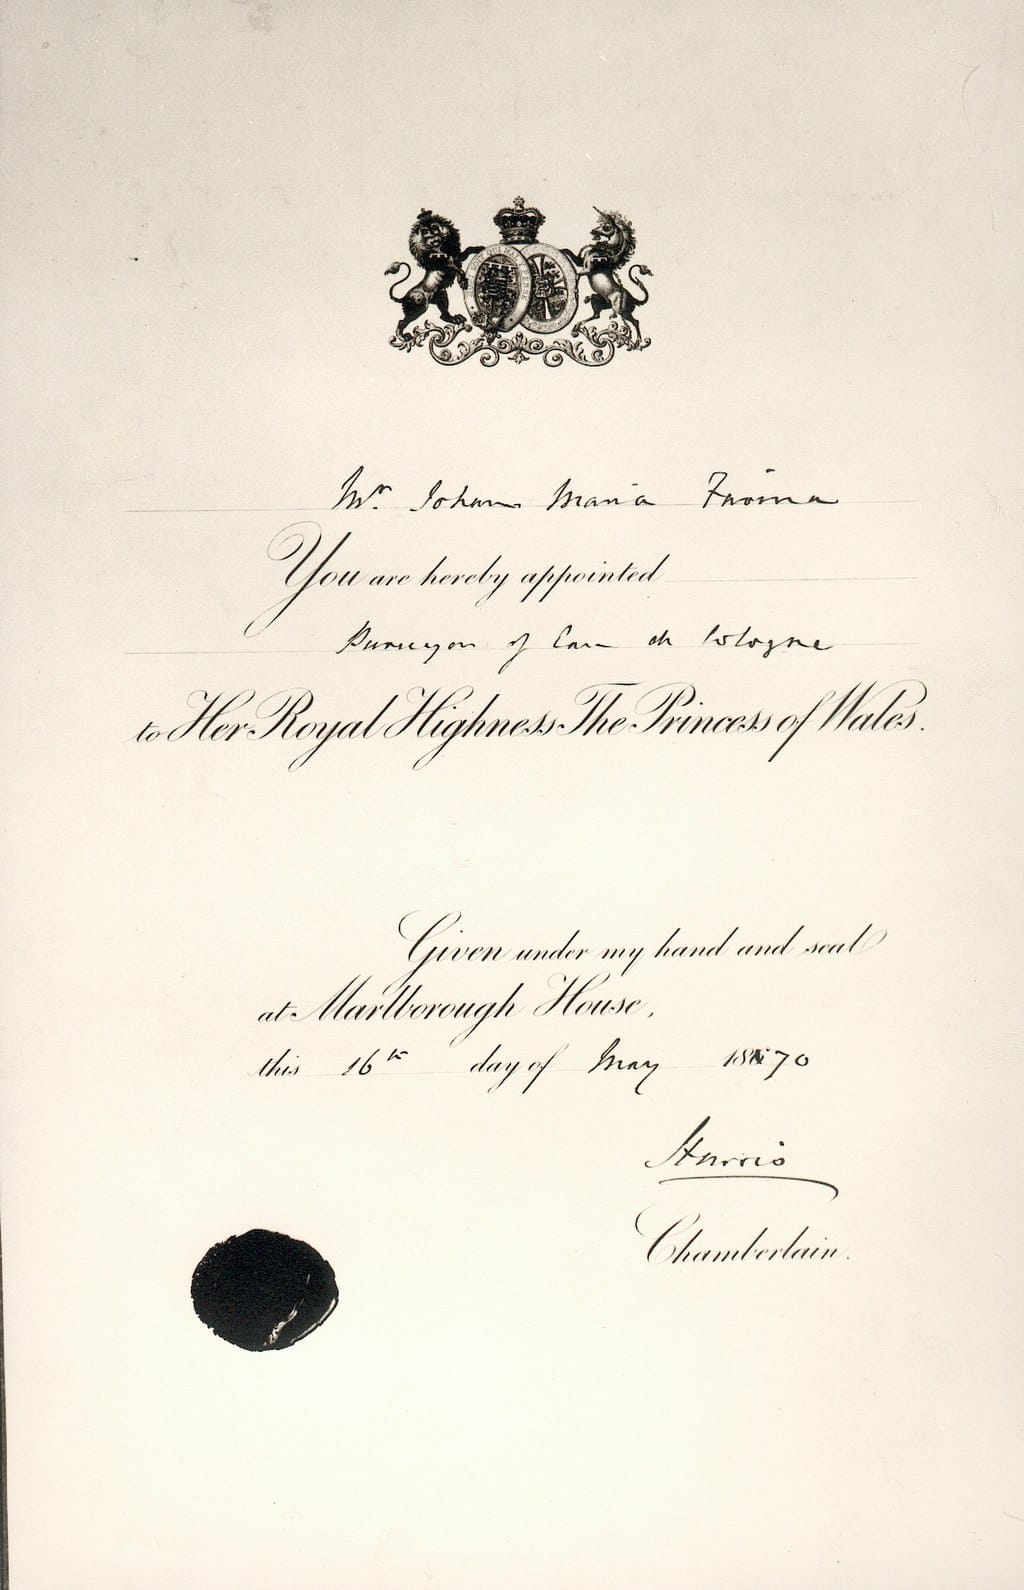 Mr. Johann Maria Farina
You are hereby appointed
Purveyor of Eau de Cologne
to Her Royal Highness The Princess of Wales.
Given under my hand and seal
at Marlborough House,
this 16th day of May 1870
Harris
Chamberlain.